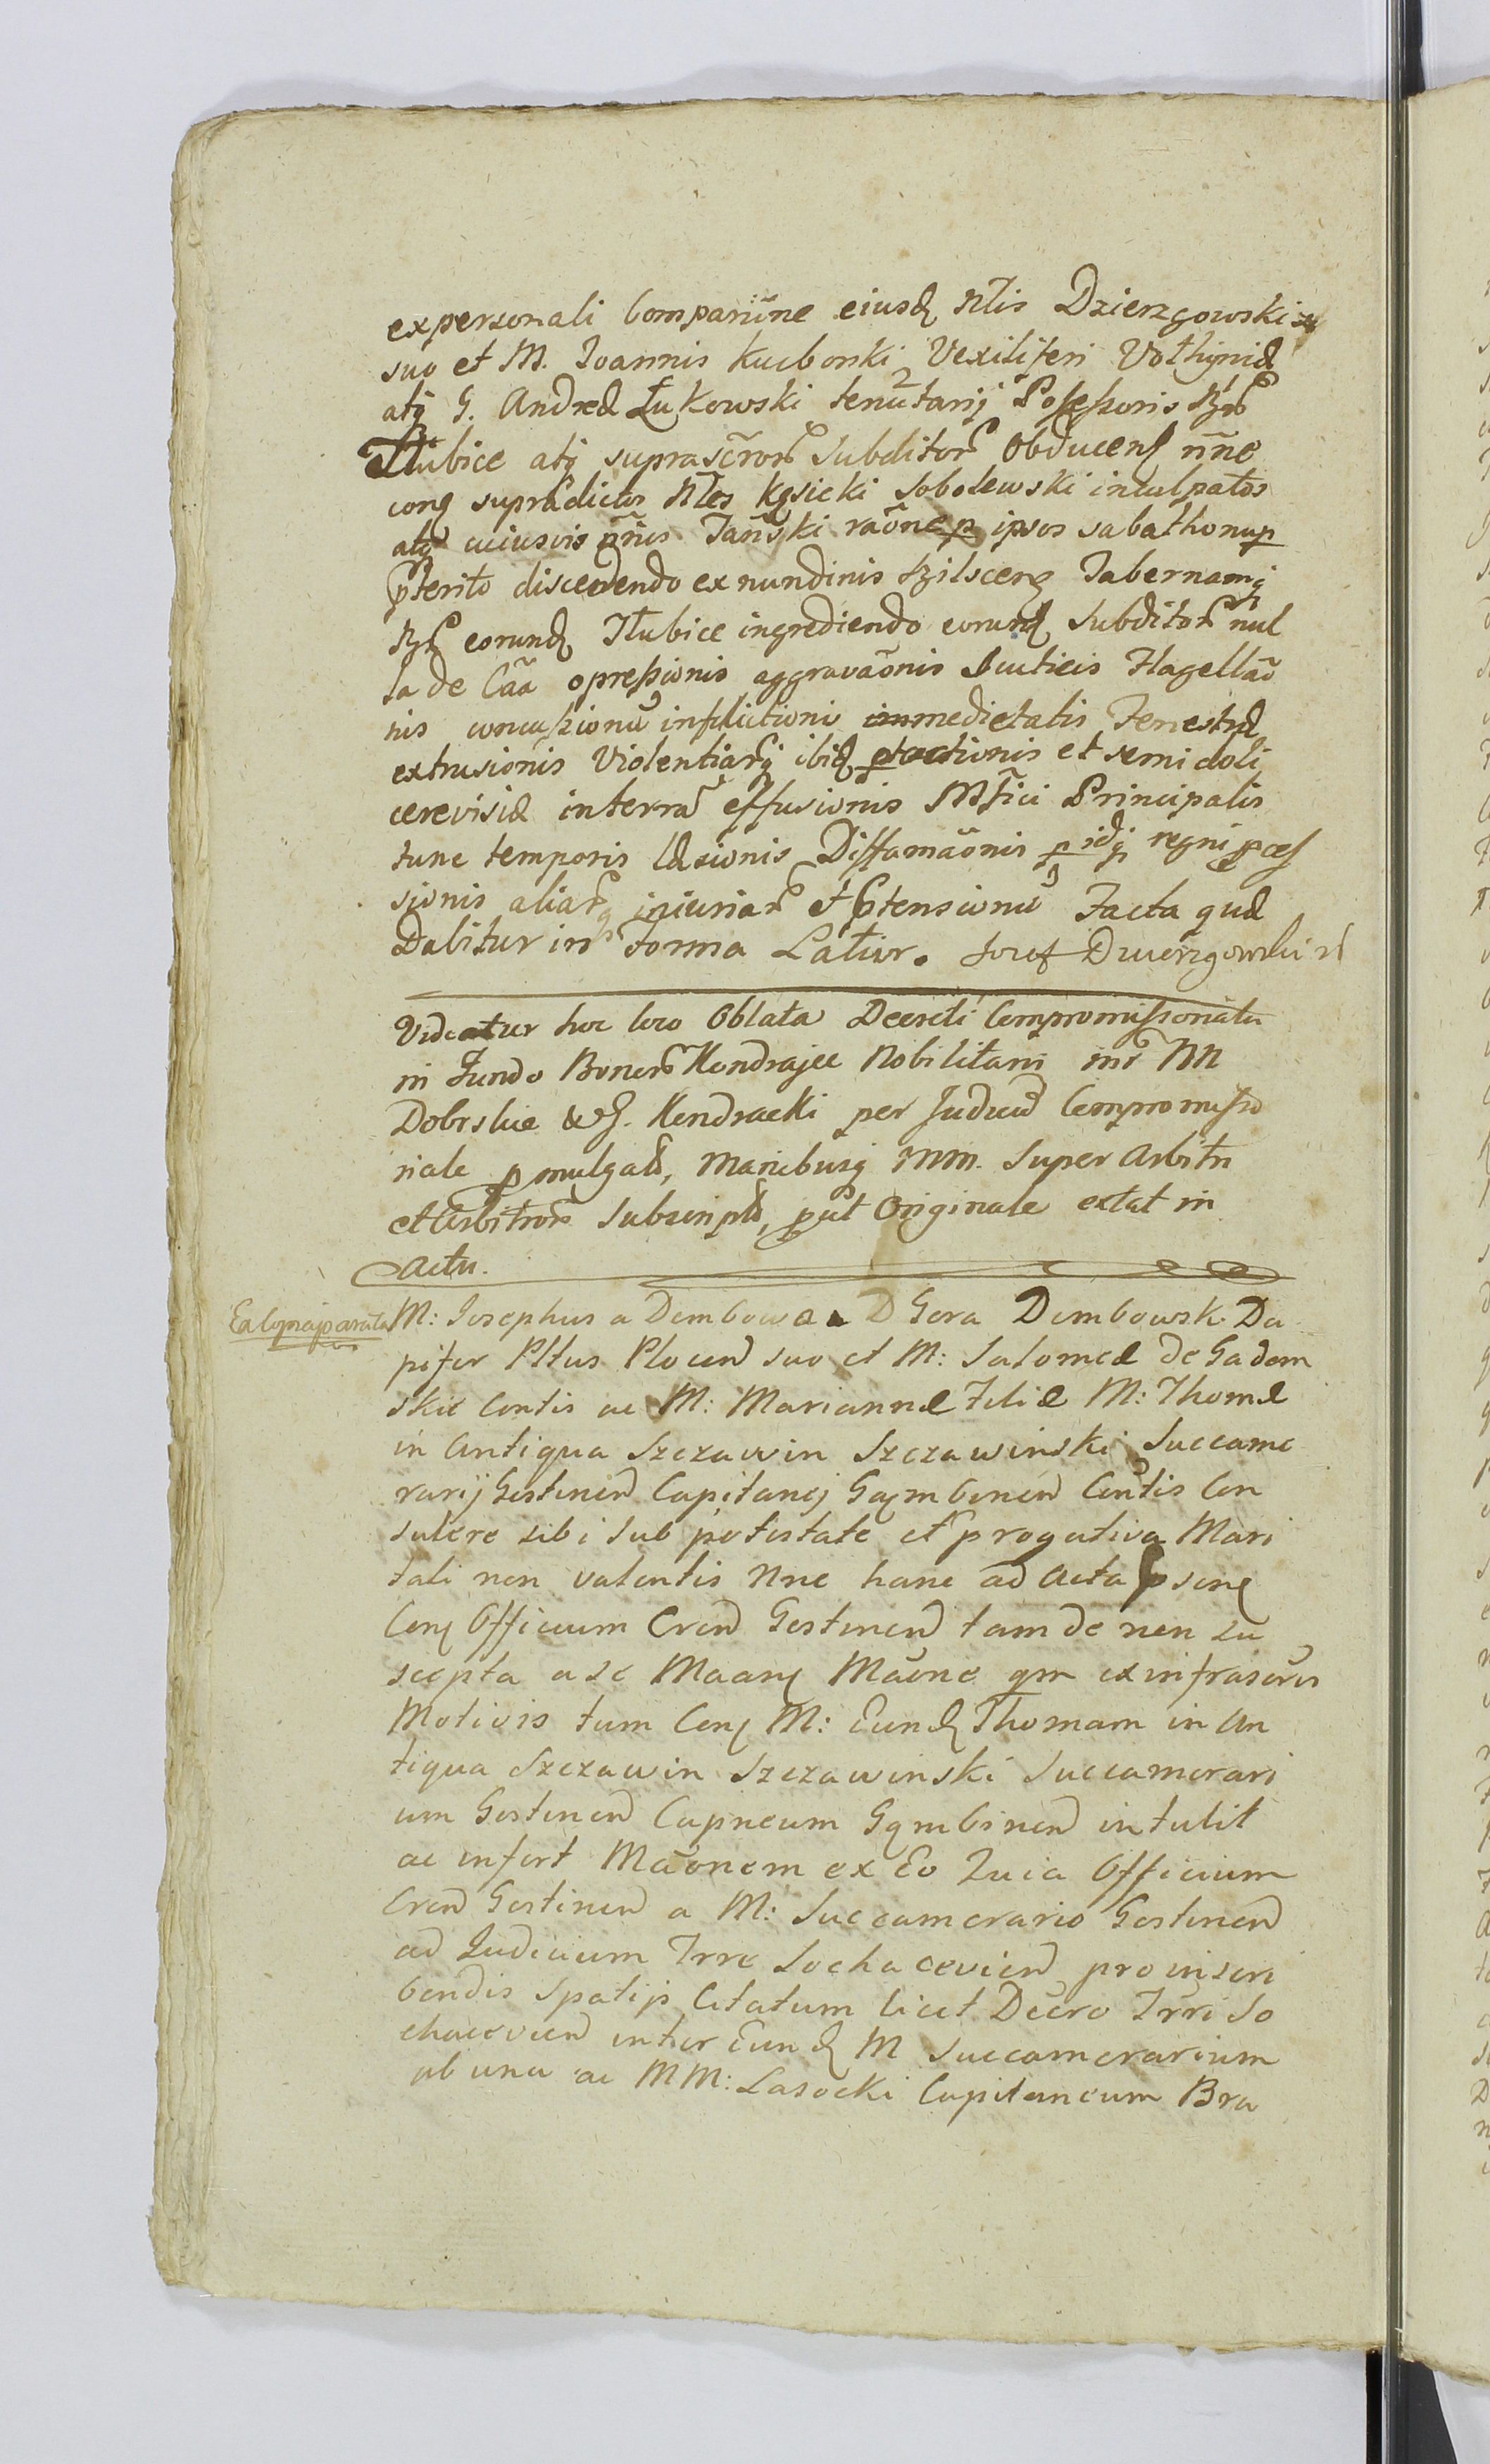 expersonali Comparitne eiusd Nlis Dzierzgowski
suo et M. Joannis Kucborski Vexiliferi Vołhyniæ
atq G. Andreæ Łukowski tenutarij Possessoris
Tłubice atq suprascror subditor Obducens nne
conq supradictos Nles Kęsicki Sobolewski inculpatos
atq cuiusvis nnis Tanski raone p ipsos sabatho nup
pterito discedendo ex nundinis Tabernamq
eorund Tłubice ingrediendo eorund Subditor nul
la de Caa opressionis aggravaonis Scuticis Flagellao
nis concussionu inflictioni immedietatis Fenestræ
extrusionis Violentiarq ibid ptractionis et semi doli
cerevisiæ interra effusionis Mfici Principalis
tunc temporis læsionis Diffamaonis regni
sionis aliarq iniuriar et ptensionu Facta quæ
Dabitur in Forma Latior. Jozef Dzierzgowski
Videatur hoc loco Oblata Decreti Compromissorialis
in Fundo Bonor Kendrajec Nobilitani inr NN
Dobrskie & G. Kendracki per Judicia Compromisso
riale pmulgati, Manibusq MM. Super Arbitri
et Arbitror Subscripti, put Originale extat in
Actu.
M: Josephus a Dembowa D Gora Dembowsk Da
pifer Pltus Plocen suo et M: Salomeæ de Gadom
skie Contis ac M: Mariannæ Filiæ M: Thomæ
in Antiqua Szczawin Szczawinski Succame
rarij Gostinen Capitanej Gąmbinen Contis Con
sulere sibi sub potestate et progativa Mari
tali non valentis Nne hanc ad Acta psenq
Conq Officium Cren Gostinen tam de non su
scepta a se Maanq Maone qm ex infrascris
Motivis tum Conq M: Eund Thomam in An
tiqua Szczawin Szczawinski Succamerari
um Gostinen Capneum Gąmbinen intulit
ac infert Maonem ex Eo Quia Officium
Cren Gostinen a M: Succamerario Gostinen
ad Judicium Trre Sochacevien pro inscri
bendis Spatijs Citatum licet Decro Trri So
chacevien inter Eund M Succamerarium
ab una ac MM: Lasocki Capitaneum Bra